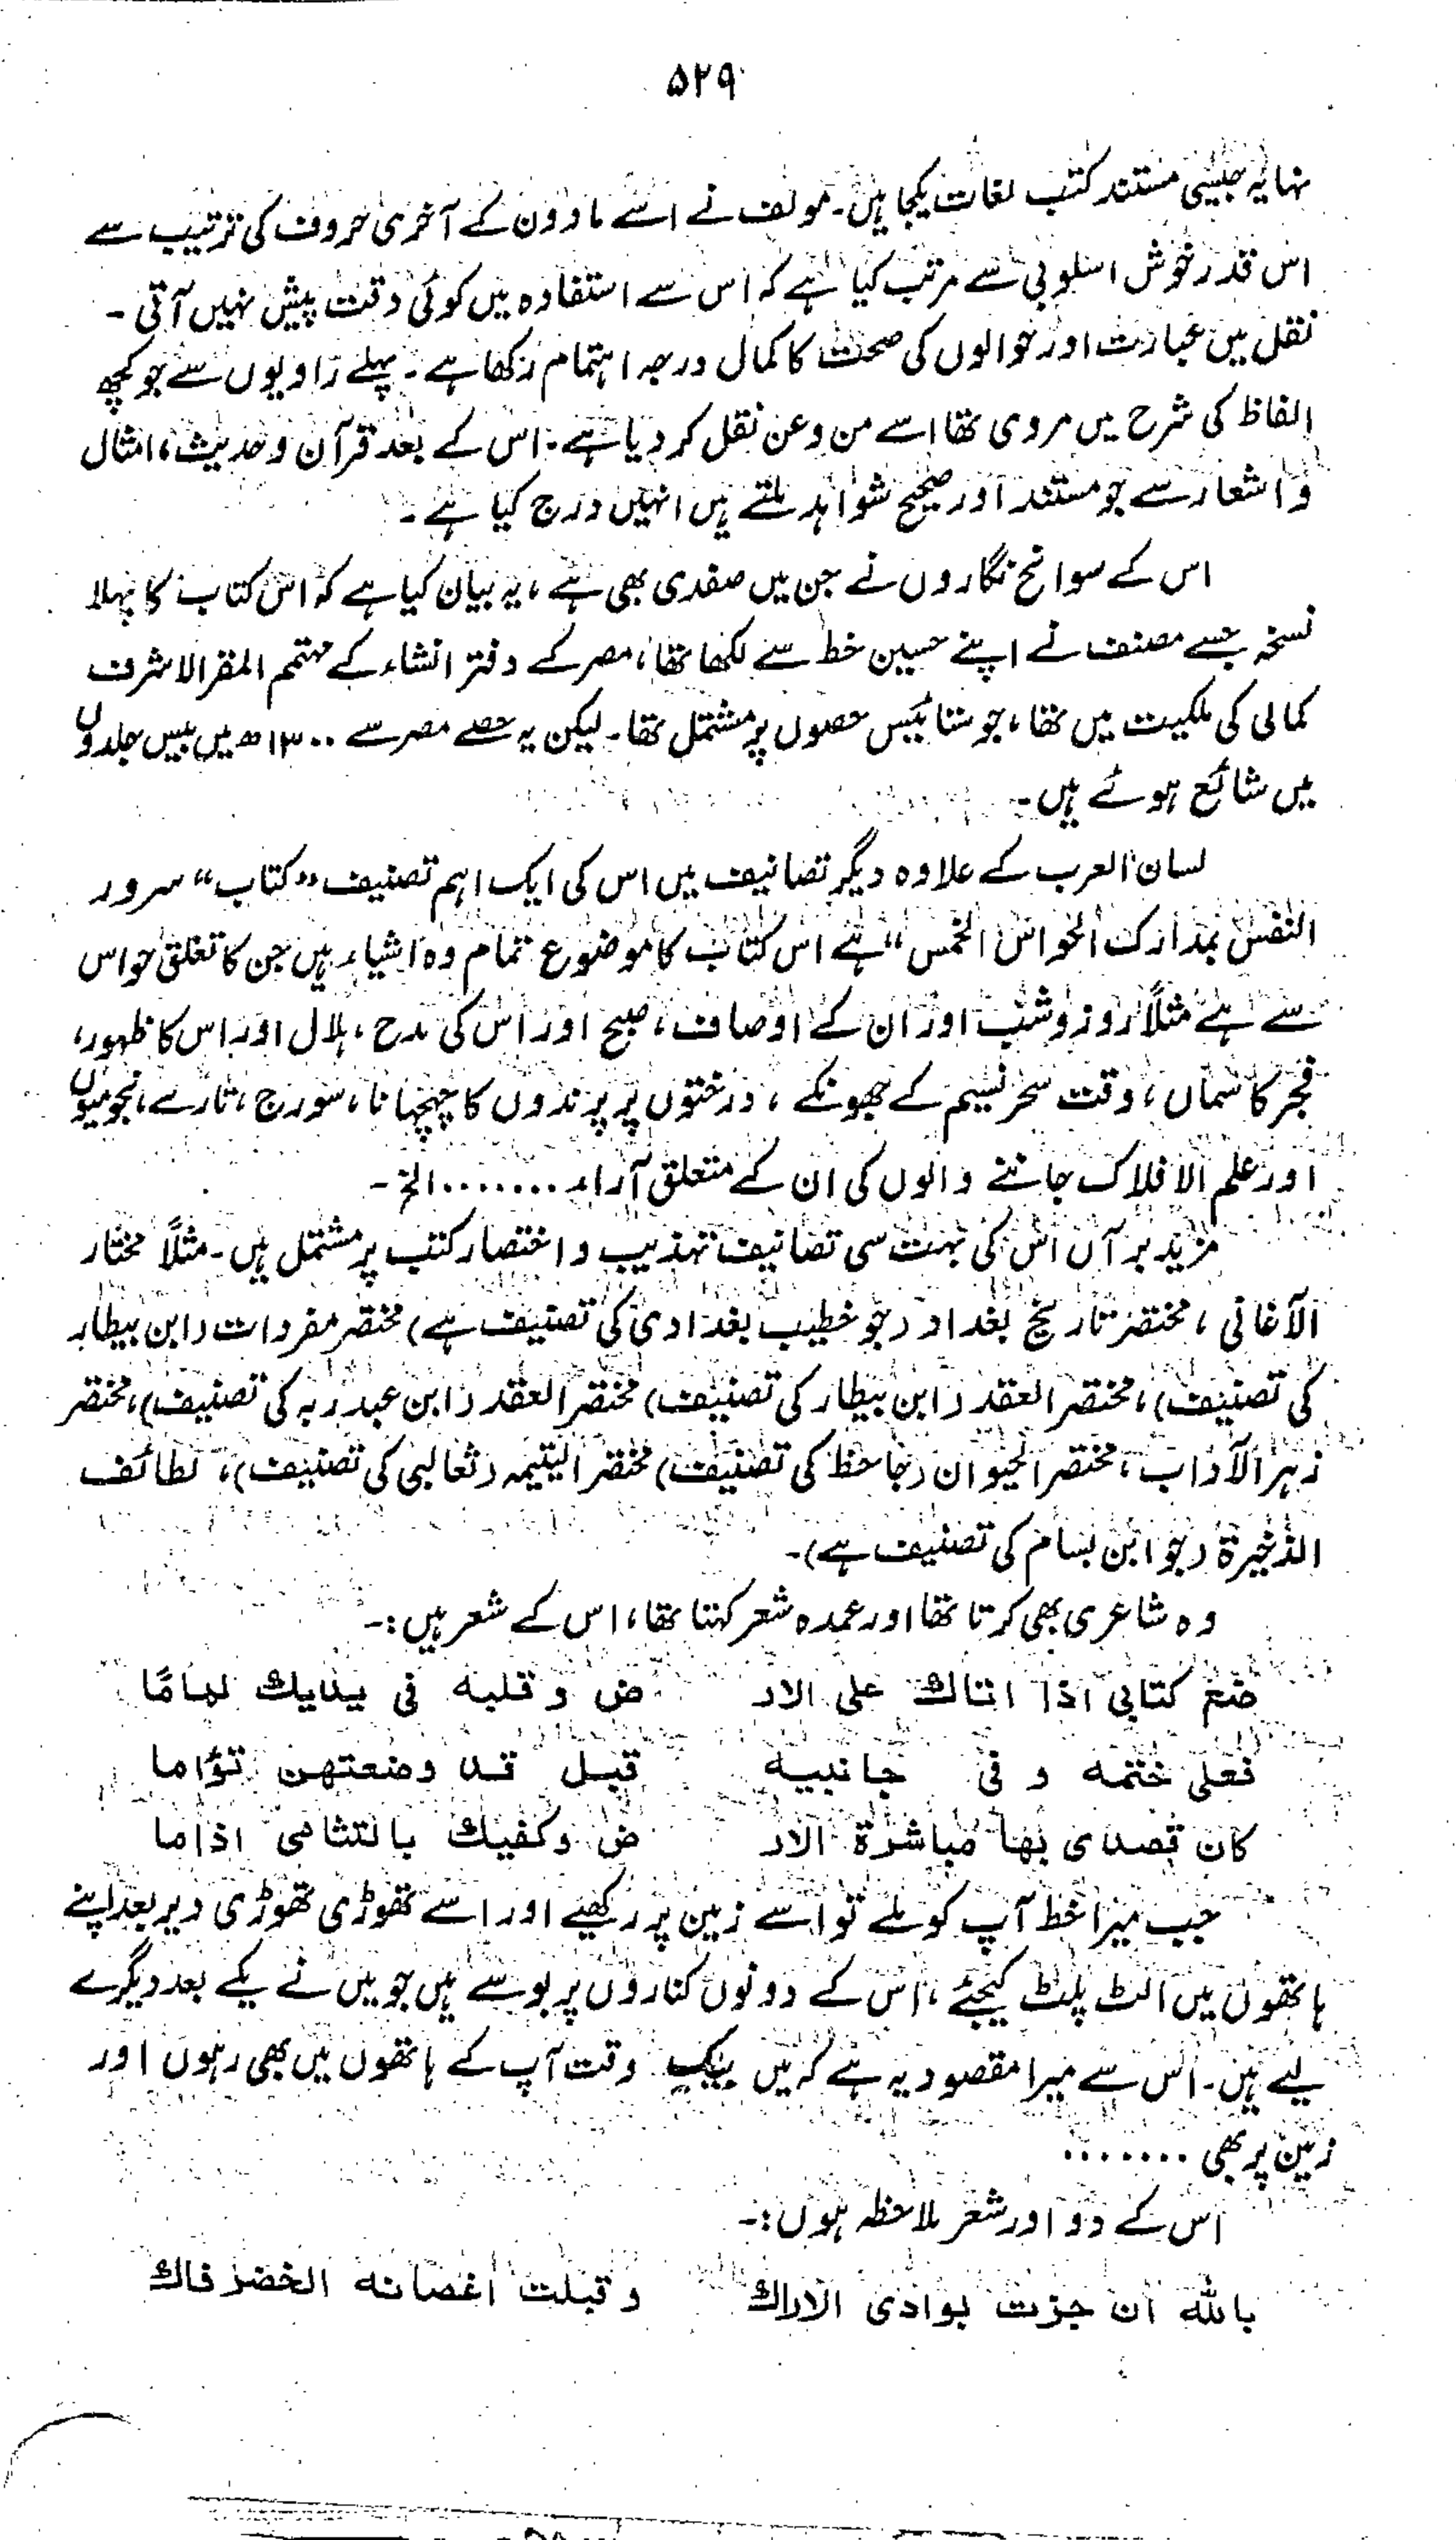 ۵۲۹
نہایہ جیسی مستند کتب لغات یکجا ہیں۔ مولف نے اسے مادون کے آخری حروف کی ترتیب سے
اس قدر خوش اسلوبی سے مرتب کیا ہے کہ اس سے استفادہ میں کوئی دقت پیش نہیں آتی۔
نقل میں عبارت اور حوالوں کی صحت کا کمال درجہ اہتمام رکھا ہے۔ پہلے راویوں سے جو کچھ
الفاظ کی شرح میں مروی تھا اسے من وعن نقل کر دیا ہے۔ اس کے بعد قرآن وحدیث، امثال
و اشعار سے جو مستند اور صحیح شواہد ملتے ہیں انہیں درج کیا ہے۔
اس کے سوانح نگاروں نے جن میں صفدی بھی ہے، یہ بیان کیا ہے کہ اس کتاب کا پہلا
نسخہ جسے مصنف نے اپنے حسین خط سے لکھا تھا، مصر کے دفتر انشاء کے مہتمم المقر الاشرف
کمالی کی ملکیت میں تھا، جو ستائیس حصوں پر مشتمل تھا۔ لیکن یہ حصے مصر سے ۱۳۰۰ھ میں بیس جلدوں
میں شائع ہوئے ہیں۔
لسان العرب کے علاوہ دیگر تصانیف میں اس کی ایک اہم تصنیف "کتاب" سرور
النفس بمدارک الحواس الخمس" ہے اس کتاب کا موضوع تمام وہ اشیاء ہیں جن کا تعلق حواس
سے ہے مثلاً روز و شب اور ان کے اوصاف، صبح اور اس کی مدح، ہلال اور اس کا ظہور،
فجر کا سماں، وقت سحر نسیم کے جھونکے، درختوں پر پرندوں کا چہچہانا، سورج، تارے، نجومیوں
اور علم الافلاک جاننے والوں کی ان کے متعلق آراء ....... الخ۔
مزید بر آں اس کی بہت سی تصانیف تہذیب و اختصار کتب پر مشتمل ہیں۔ مثلاً مختار
الآغانی، مختصر تاریخ بغداد (جو خطیب بغدادی کی تصنیف ہے) مختصر مفردات (ابن بیطار
کی تصنیف)، مختصر العقد (ابن بیطار کی تصنیف) مختصر العقد (ابن عبد ربہ کی تصنیف)، مختصر
زہر الآداب، مختصر الحیوان (جاحظ کی تصنیف) مختصر الیتیمہ (ثعالبی کی تصنیف)، لطائف
الذخیرۃ (جو ابن بسام کی تصنیف ہے)۔
وہ شاعری بھی کرتا تھا اور عمدہ شعر کہتا تھا، اس کے شعر ہیں:۔
ضع کتابی اذا اتاک علی الار ض و قلبه فی یدیک لماما
فعلی ختمه و فی جانبیه قبل قد وضعتهن تؤاما
کان قصدی بها مباشرة الار ض وکفیک بالتثامی اذاما
جب میرا خط آپ کو ملے تو اسے زمین پر رکھیے اور اسے تھوڑی تھوڑی دیر بعد اپنے
ہاتھوں میں الٹ پلٹ کیجئے، اس کے دونوں کناروں پر بوسے ہیں جو میں نے یکے بعد دیگرے
لیے ہیں۔ اس سے میرا مقصود یہ ہے کہ میں بیک وقت آپ کے ہاتھوں میں بھی رہوں اور
زمین پر بھی .......
اس کے دو اور شعر ملاحظہ ہوں:۔
بالله ان جزت بوادی الاراک و قبلت اغصانه الخضر فاک